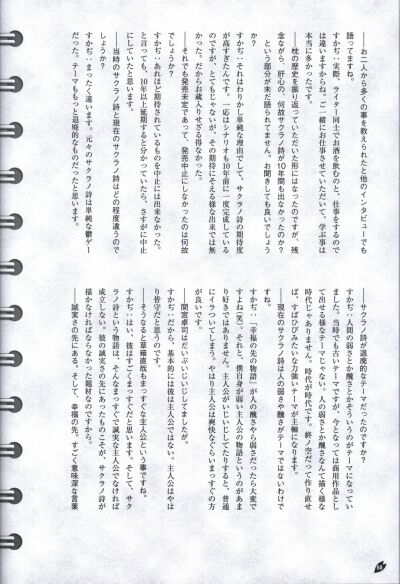 ――お二人から多くの事を教えられたと他のインタビューでも
語ってますね。
すかぢ：実際、ライター同士でお酒を飲むのと、仕事をするので
は違いますからね。ご一緒にお仕事させていただいて、学ぶ事は
本当に多かったです。
――枕の歴史を振り返っていただいた形にはなったのですが、残
念ながら、肝心の、何故サクラノ詩が０年間も出なかったのか？
という部分が未だ語られてません。お聞きしても良いでしょう
か？
すかぢ：それはわりかし単純な理由でして、サクラノ詩の期待度
が高すぎたんです。一応はシナリオも10年前に一度完成している
のですが、とてもじゃないが、その期待にそえる様な出来では無
かった。だからお蔵入りせざる得なかった。
――それでも発売未定であって、発売中止にしなかったのは何故
でしょうか？
すかぢ：あれほど期待されているものを中止には出来なかった。
と言っても、10年以上延期すると分かっていたら、さすがに中止
にしていたと思います。
――当時のサクラノ詩と現在のサクラノ詩はどの程度違うので
しょうか？
すかぢ：まったく違います。元々のサクラノ詩は単純な鬱ゲー
だった。テーマももっと退廃的なものだったと思います。
――サクラノ詩が退廃的なテーマだったのですか？
すかぢ：人間の弱さとか醜さとかそういうのがテーマになってい
ました。当時でも古いテーマですが、今となっては商用作品とし
て出せる様なものじゃない。人の弱さとか醜さなんて描く様な
時代じゃありません。時代が時代です。終ノ空だって作り直せ
ば、すばひびみたいな力強いテーマが主軸になります。
――現在のサクラノ詩は人の弱さや醜さがテーマではないわけで
すね。
すかぢ：「幸福の先の物語」が人の醜さやら弱さだったら大変で
すよね（笑）。それと、僕自身が弱い主人公の物語というのがあま
り好きではありません。主人公がいじいじしてたりすると、普通
にイラついてしまう。やはり主人公は爽快なぐらいまっすぐの方
が良いです。
――間宮卓司はだいぶいじいじしてましたが。
すかぢ：だから、基本的には彼は主人公ではない。主人公はやは
り皆守だと思うのです。
――そうなると草薙直哉もまっすぐな主人公という事ですね。
すかぢ：はい、彼はすごくまっすぐだと思います。そして、サク
ラノ詩という物語は、そんなまっすぐで誠実な主人公でなければ
成立しない。彼の誠実さの先にあったものこそが、サクラノ詩が
描かなければならなかった題材なのですから。
――誠実さの先にある。そして、幸福の先。すごく意味深な言葉
68